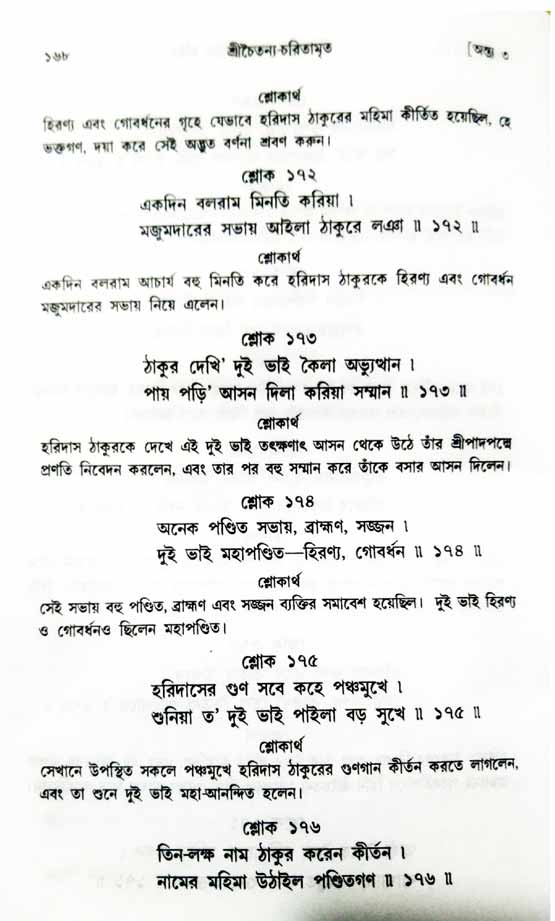 ১৬৮
শ্রীচৈতন্য-চরিতামৃত
[অন্ত্য ৩
শ্লোকার্থ
হিরণ্য এবং গোবর্ধনের গৃহে যেভাবে হরিদাস ঠাকুরের মহিমা কীর্তিত হয়েছিল, হে
ভক্তগণ, দয়া করে সেই অদ্ভুত বর্ণনা শ্রবণ করুন।
শ্লোক ১৭২
একদিন বলরাম মিনতি করিয়া ।
মজুমদারের সভায় আইলা ঠাকুরে লঞা ॥ ১৭২ ॥
শ্লোকার্থ
একদিন বলরাম আচার্য বহু মিনতি করে হরিদাস ঠাকুরকে হিরণ্য এবং গোবর্ধন
মজুমদারের সভায় নিয়ে এলেন।
শ্লোক ১৭৩
ঠাকুর দেখি' দুই ভাই কৈলা অভ্যুত্থান ।
পায় পড়ি' আসন দিলা করিয়া সম্মান ॥ ১৭৩ ॥
শ্লোকার্থ
হরিদাস ঠাকুরকে দেখে এই দুই ভাই তৎক্ষণাৎ আসন থেকে উঠে তাঁর শ্রীপাদপদ্মে
প্রণতি নিবেদন করলেন, এবং তার পর বহু সম্মান করে তাঁকে বসার আসন দিলেন।
শ্লোক ১৭৪
অনেক পণ্ডিত সভায়, ব্রাহ্মণ, সজ্জন ।
দুই ভাই মহাপণ্ডিত—হিরণ্য, গোবর্ধন ॥ ১৭৪ ॥
শ্লোকার্থ
সেই সভায় বহু পণ্ডিত, ব্রাহ্মণ এবং সজ্জন ব্যক্তির সমাবেশ হয়েছিল। দুই ভাই হিরণ্য
ও গোবর্ধনও ছিলেন মহাপণ্ডিত।
শ্লোক ১৭৫
হরিদাসের গুণ সবে কহে পঞ্চমুখে ।
শুনিয়া ত' দুই ভাই পাইলা বড় সুখে ॥ ১৭৫ ॥
শ্লোকার্থ
সেখানে উপস্থিত সকলে পঞ্চমুখে হরিদাস ঠাকুরের গুণগান কীর্তন করতে লাগলেন,
এবং তা শুনে দুই ভাই মহা-আনন্দিত হলেন।
শ্লোক ১৭৬
তিন-লক্ষ নাম ঠাকুর করেন কীর্তন ।
নামের মহিমা উঠাইল পণ্ডিতগণ ॥ ১৭৬ ॥